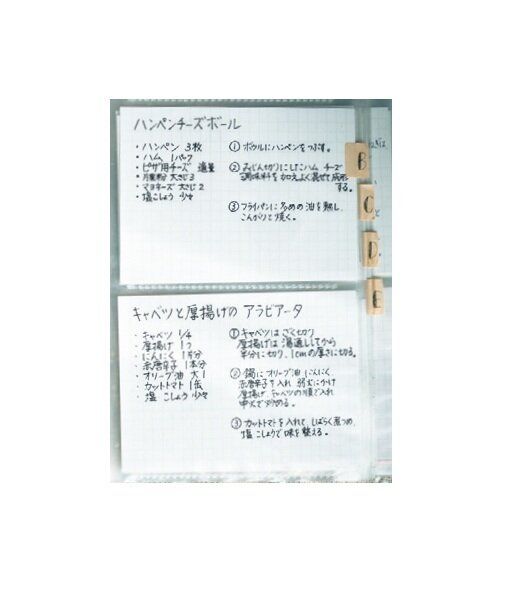 ハンペンチーズボール
・ハンペン 3枚
・ハム 1パック
・ピザ用チーズ 適量
・片栗粉 大さじ3
・マヨネーズ 大さじ2
・塩こしょう 少々
① ボウルにハンペンをつぶす。
② みじん切りにしたハム チーズ
調味料を加えよく混ぜて成形
する。
③ フライパンに多めの油を熱し、
こんがりと焼く。
B
C
D
E
キャベツと厚揚げの アラビアータ
・キャベツ 1/4
・厚揚げ 1つ
・にんにく 1片分
・赤唐辛子 1本分
・オリーブ油 大1
・カットトマト 1缶
・塩 こしょう 少々
① キャベツは ざく切り
厚揚げは 湯通ししてから
半分に切り、1cmの厚さに切る。
② 鍋に オリーブ油 にんにく
赤唐辛子を入れ 弱火にかけ
厚揚げ、キャベツの順で入れ
中火で炒める。
③ カットトマトを入れて、しばらく煮つめ、
塩 こしょうで味を整える。